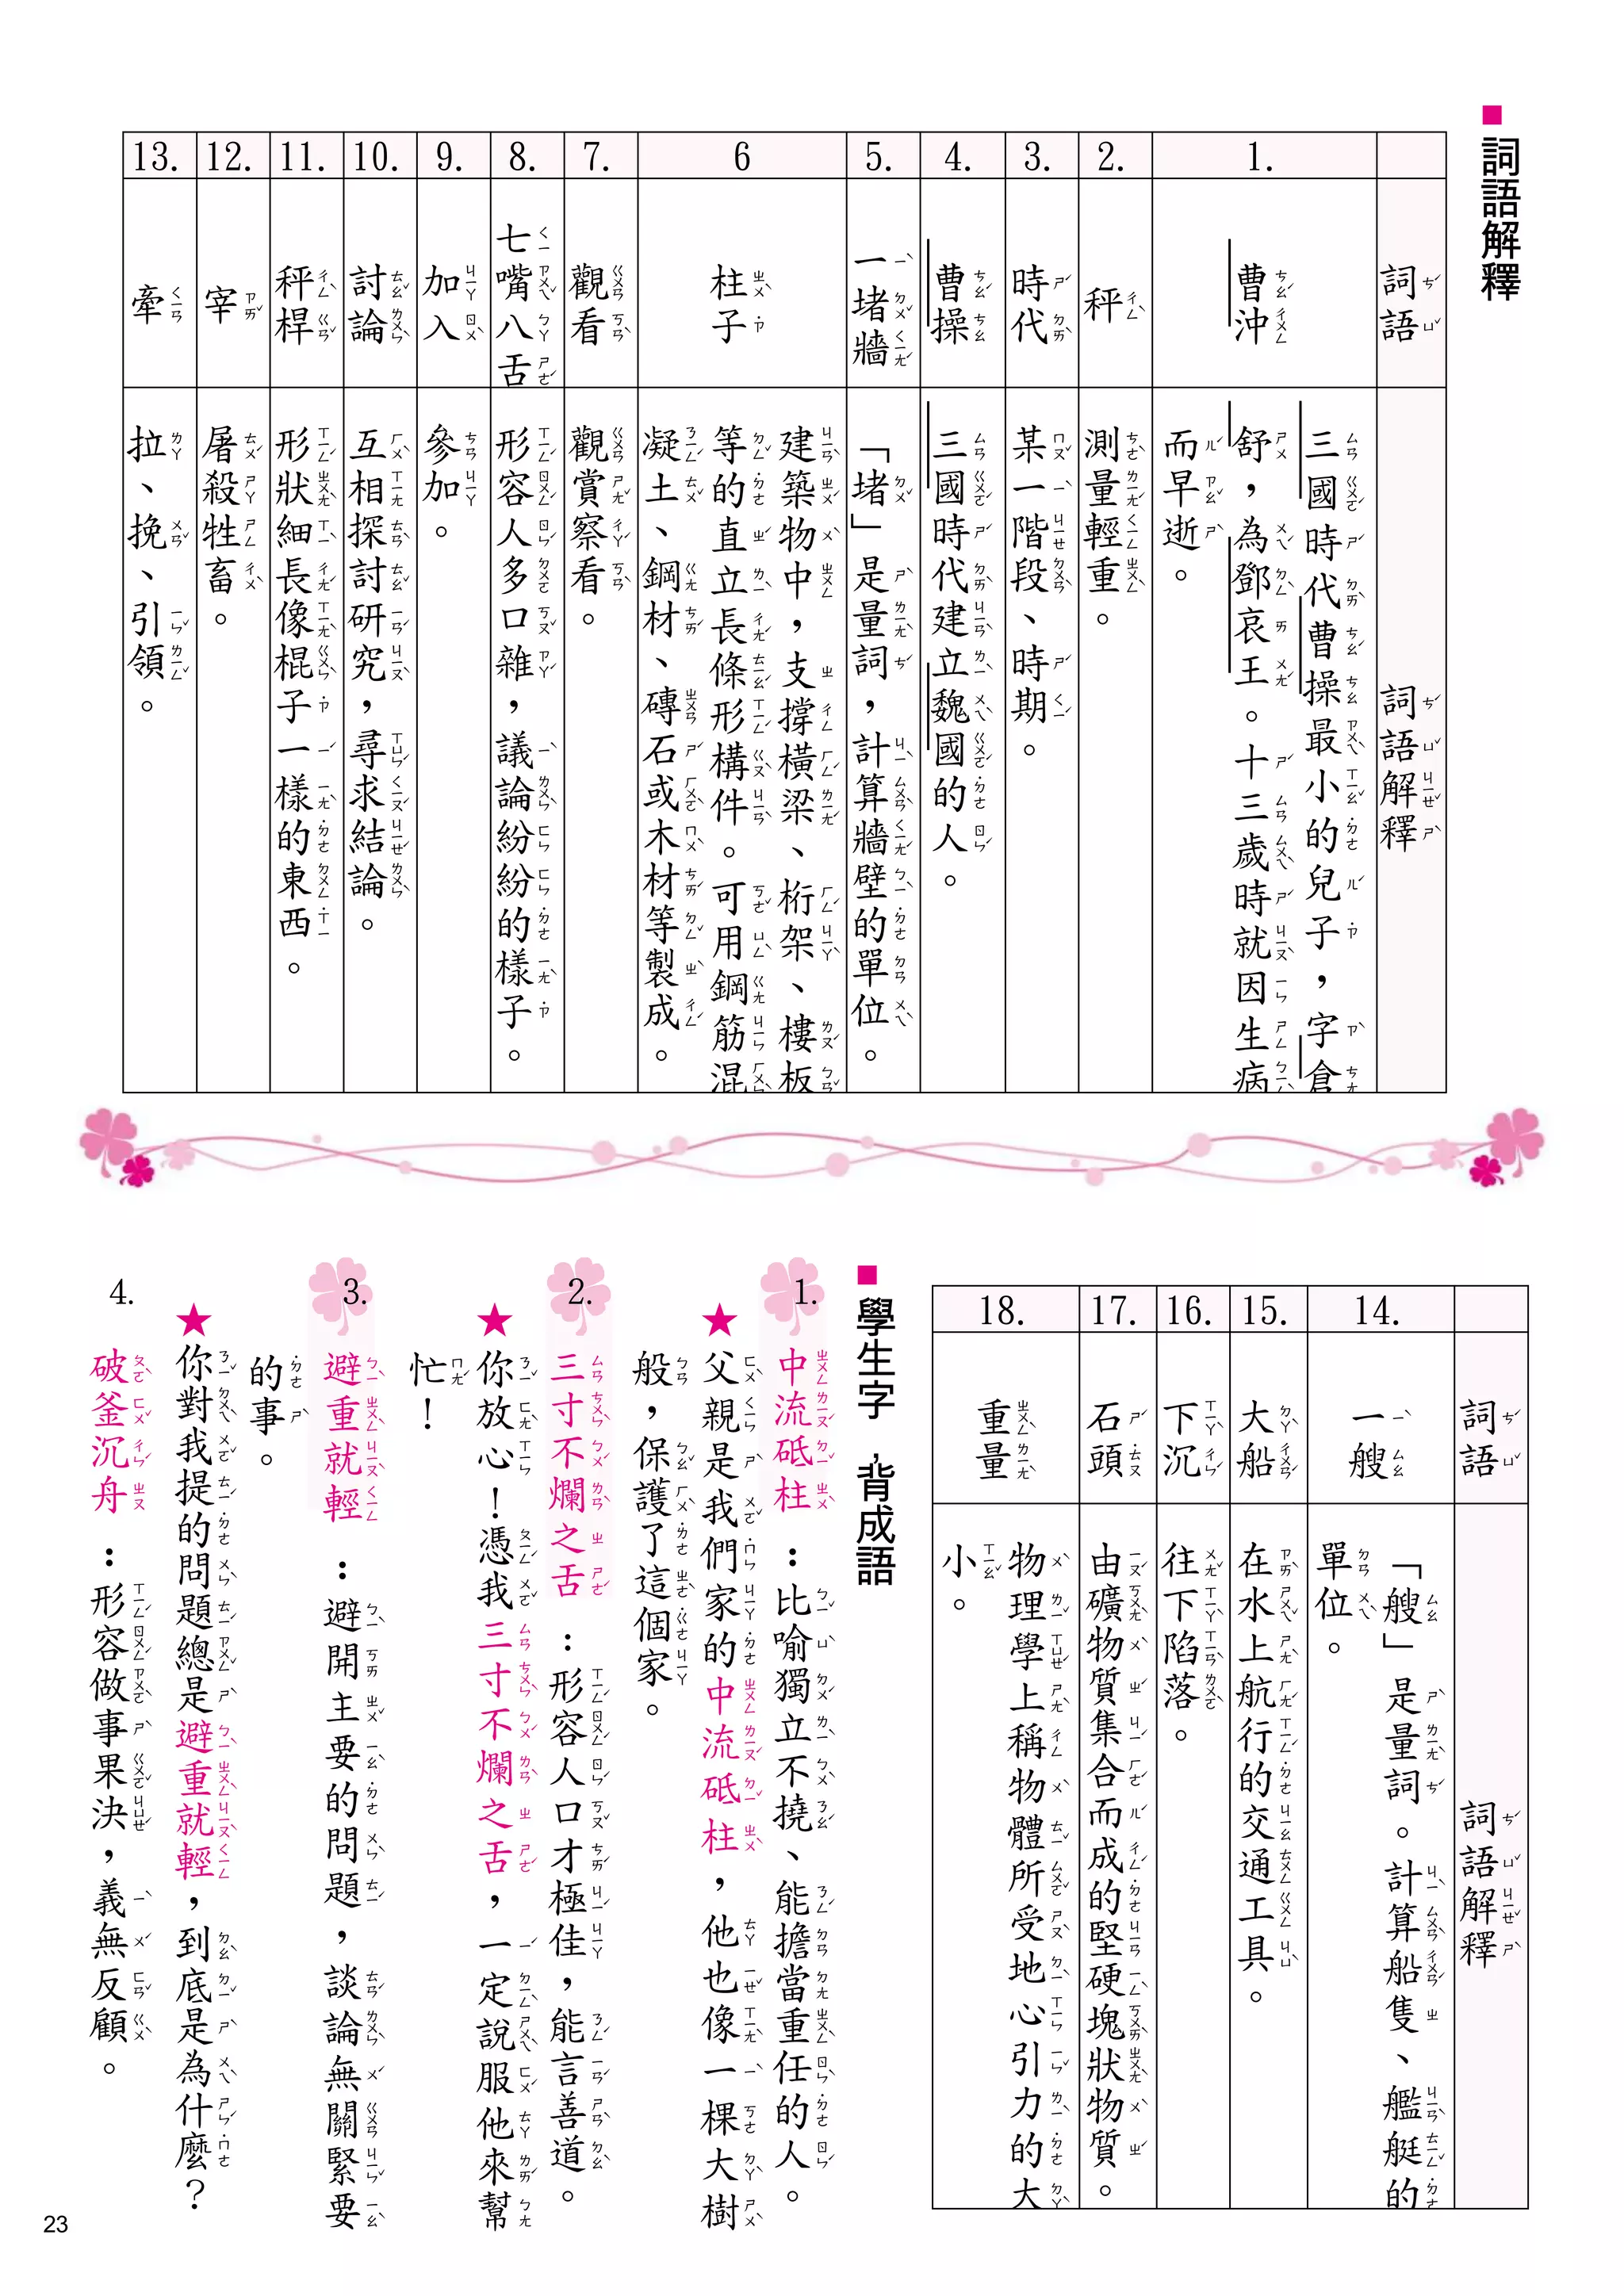 ■詞語解釋
詞語 詞語解釋
1. 曹沖 三國時代曹操最小的兒子，字倉
舒，為鄧哀王。十三歲時就因生病
而早逝。
2. 秤 測量輕重。
3. 時代 某一階段、時期。
4. 曹操 三國時代建立魏國的人。
5. 一堵牆 「堵」是量詞，計算牆壁的單位。
6 柱子 建築物中，支撐橫梁、桁架、樓板
等的直立長條形構件。可用鋼筋混
凝土、鋼材、磚石或木材等製成。
7. 觀看 觀賞察看。
8. 七嘴八舌 形容人多口雜，議論紛紛的樣子。
9. 加入 參加。
10. 討論 互相探討研究，尋求結論。
11. 秤桿 形狀細長像棍子一樣的東西。
12. 宰 屠殺牲畜。
13. 牽 拉、挽、引領。
詞語 詞語解釋
14. 一艘 「艘」是量詞。計算船隻、艦艇的
單位。
15. 大船 在水上航行的交通工具。
16. 下沉 往下陷落。
17. 石頭 由礦物質集合而成的堅硬塊狀物質。
18. 重量 物理學上稱物體所受地心引力的大
小。
■學生字，背成語
1. 中流砥柱：比喻獨立不撓、能擔當重任的人。
★父親是我們家的中流砥柱，他也像一棵大樹
般，保護了這個家。
2. 三寸不爛之舌：形容人口才極佳，能言善道。
★你放心！憑我三寸不爛之舌，一定說服他來幫
忙！
3. 避重就輕：避開主要的問題，談論無關緊要
的事。
★你對我提的問題總是避重就輕，到底是為什麼？
4. 破釜沉舟：形容做事果決，義無反顧。
23